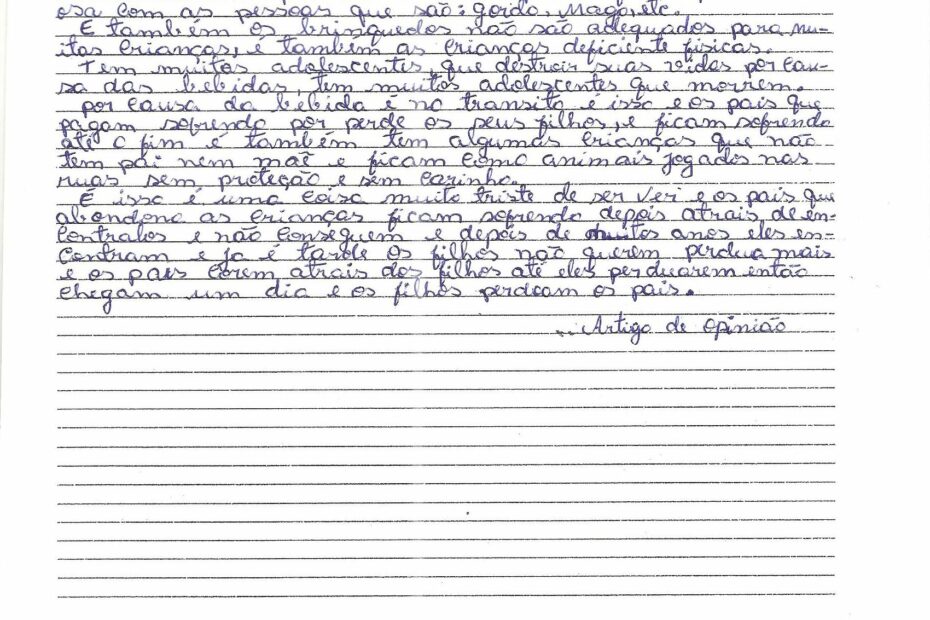 osa com as pessoas que são: gordo, mago, etc.
E também os brinquedos não são adequados para mu-
itas crianças, e também as crianças deficiente fisicas.
Tem muitos adolescentes, que destroir suas vidas por cau-
sa das bebidas, tem muitos adolescentes que morrem.
por causa da bebida é no transito é isso e os pais que
pagam sofrendo por perde os seus filhos, e ficam sofrendo
até o fim é também tem algumas crianças que não
tem pai nem maẽ e ficam como animais jogados nas
ruas sem proteção e sem carinho.
É isso é uma coisa muito triste de ser ver e os pais que
abondona as crianças ficam sofrendo depois atrais de en-
contralos e não conseguem e depois de muitos anos eles en-
contram e ja é tarde os filhos não querem perdua mais
e os pais corem atrais dos filhos até eles perduarem então
chegam um dia e os filhos perdoam os pais.
Artigo de opinião